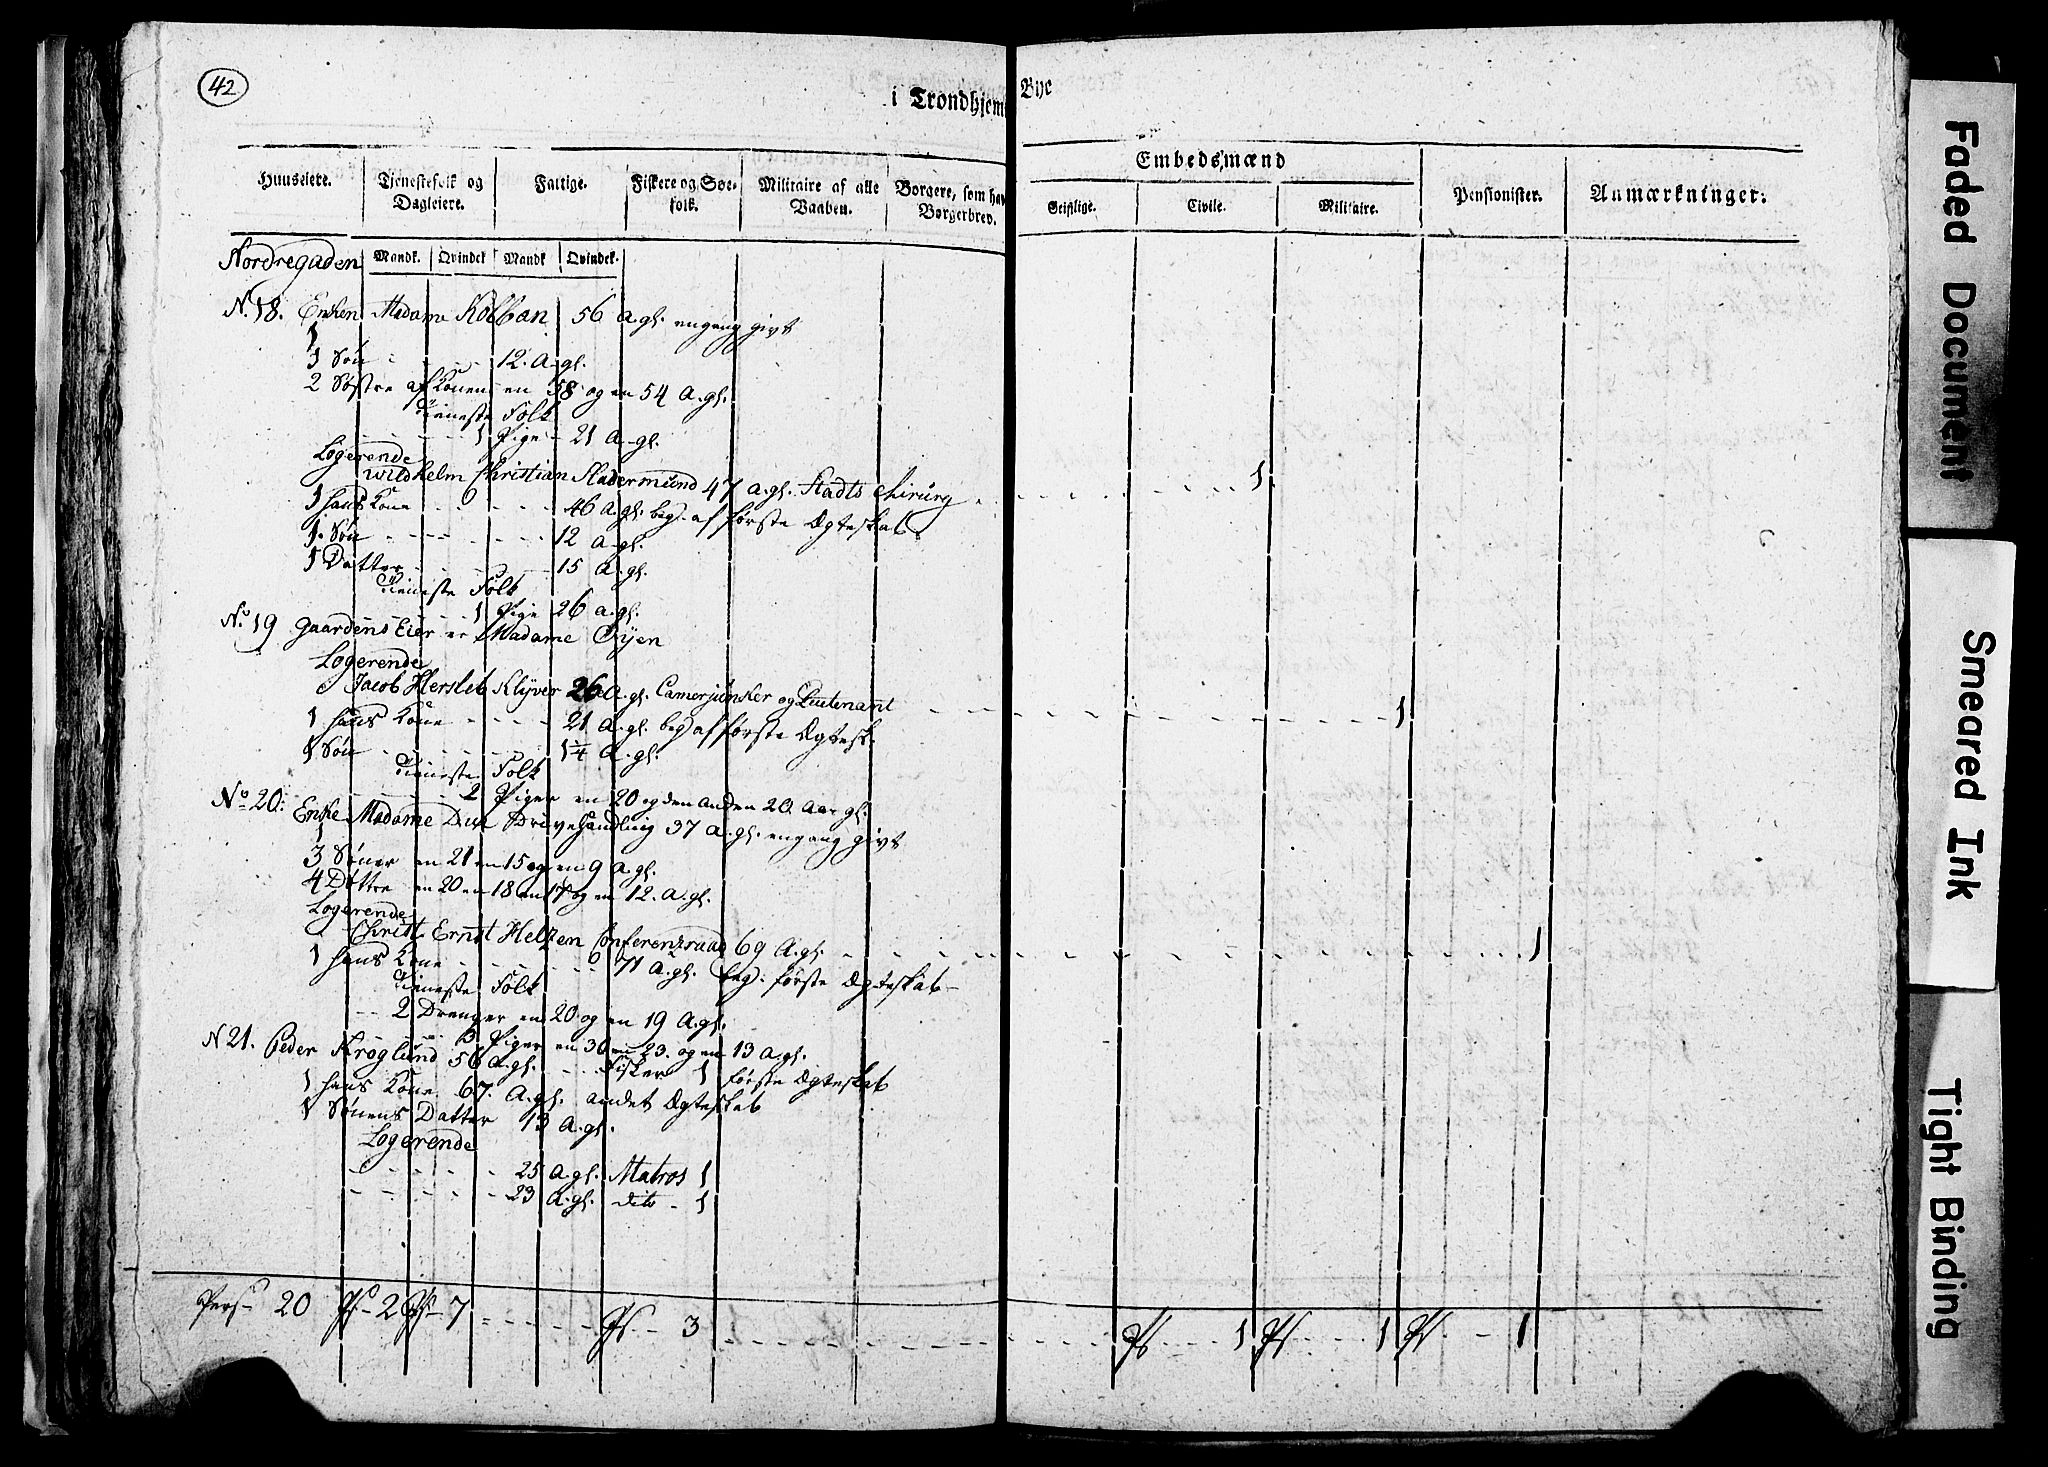 42
i Trondhjems Bye
Huuseiere. Tjenestefolk og Dagleiere. Fattige. Fiskere og Søefolk. Militaire af alle Vaaben. Borgere, som hav Borgerbrev. Embedsmænd Geistlige. Civile. Militaire. Pensionister. Anmærkninger.
Nordregaden Mandk. Qvindek Mandk Qvindek.
N. 18. Enken Madame Kolban 56 A. gl. engang givt
1
1 Søn - - - - 12. A. gl.
2 Søstre af Konen en 58 og en 54 A. gl.
Tieneste Folk
- - - - 1 Pige - 21 A. gl.
Logerende
Wildhelm Christian Stadermünd 47 A. gl. Stadts Chirurg - - - - - 1
1 hans Kone - - - - 46 A. gl. beg. af første Ægteskab
1. Søn - - - - - 12 A. gl.
1 Datter - - - - 15 A. gl.
Tieneste Folk
- - - - 1 Pige 26 A. gl.
No. 19 Gaardens Eier er Madame Øyen
Logerende
Jacob Herslet Klyver 26 A. gl. Camerjunker og Leutenant - - - - - 1
1 hans Kone - - - - 21 A. gl. beg af første Ægtesk.
1 Søn - - - - - 1¼ A. gl.
Tieneste Folk
- - - - 2 Piger en 20 og den anden 20 Aar gl.
No. 20. Enke Madame Due Drivehandling 37 A. gl. engang givt
1
3 Sønner en 21 en 15 og en 9 A. gl.
4 Døttre en 20 en 18 en 17 og en 12. A. gl.
Logerende
Christ Ernst Helzen Conferenzraad 69 A. gl. - - - - - 1
1 hans Kone - - - - 71 A. gl. beg. første Ægteskab -
Tieneste Folk
- - 2 Drenger en 20 og en 19 A. gl.
- - - 3 Piger en 30 en 23. og en 13 A. gl.
N 21. Peder Kroglund 56 A. gl. - - Fisker 1 første Ægteskab
1 hans Kone 67. A. gl. andet Ægteskab
1 Sønens Datter 13 A. gl.
Logerende
- - - - - 25 A. gl. Matros 1
- - - - - 23 A. gl. dito - 1
Pers 20 Ps - 2 Ps - 7 - - - - Ps - 3 - - - - Ps - - 1 Ps - - 1 Ps - 1
Faded Document
Smeared Ink
Tight Binding